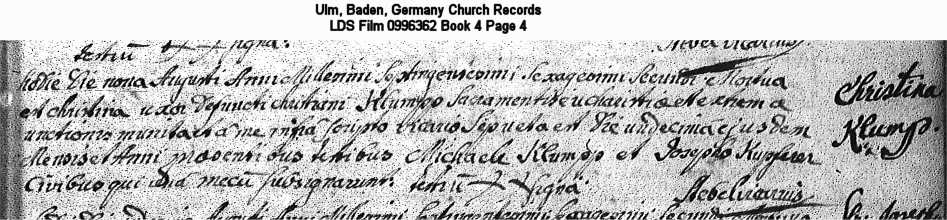 Ulm, Baden, Germany Church Records
LDS Film 0996362 Book 4 Page 4
testiū signa.
Nebel vicarius
hodie Die nona Augusti Anni Millesimi Septingentesimi Sexagesimi Secundi Mortua
est christina uxor defuncti christiani Klumpp Sacramentis eucharistiae et extrema
unctionis munita et a me infra scripto vicario Sepulta est Die undecima ejusdem
Mensis et Anni praesentibus testibus Michaele Klumpp et Josepho Kupferer
Civibus qui una mecū subsignarunt. testiū signa
Nebel vicarius
Christina
Klumpp.
Augusti Anni Millesimi Septingentesimi Sexagesimi Secundi Mortua